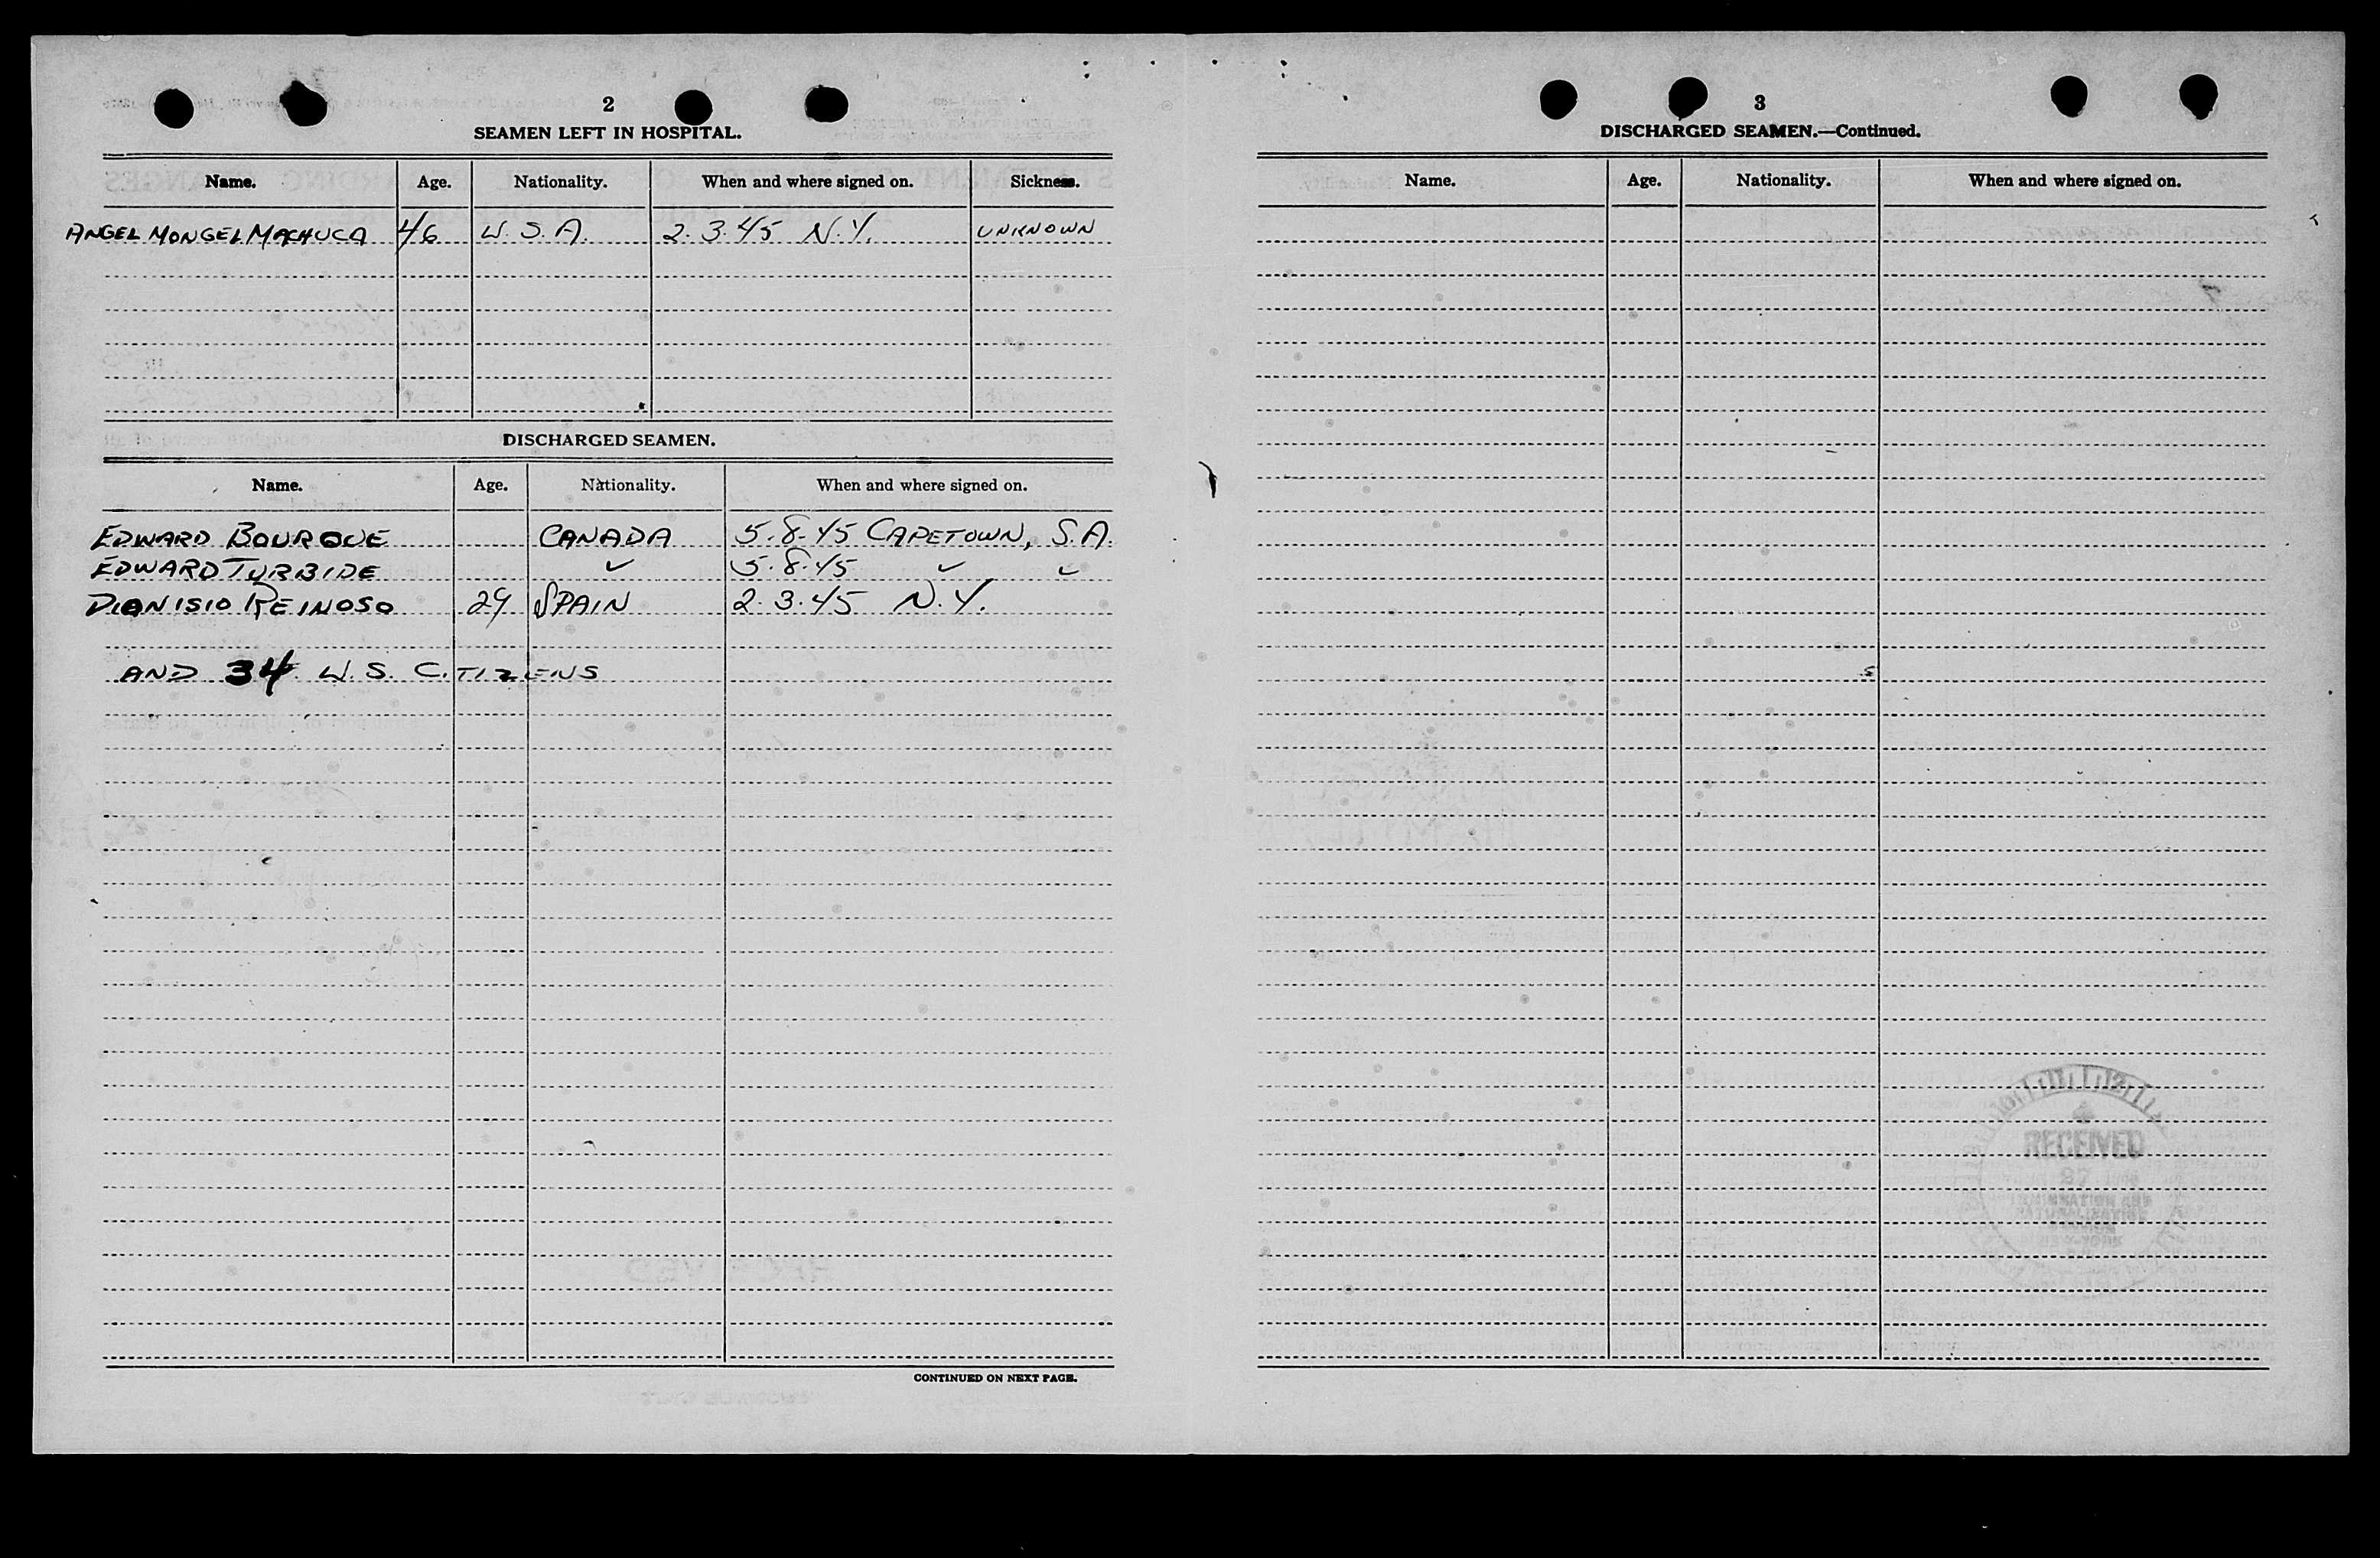 2
SEAMEN LEFT IN HOSPITAL.
Name. Age. Nationality. When and where signed on. Sickness.
ANGEL MONGEL MACHUCA 46 U.S.A. 2.3.45 N.Y. UNKNOWN
DISCHARGED SEAMEN.
Name. Age. Nationality. When and where signed on.
EDWARD BOURQUE CANADA 5.8.45 CAPETOWN, S.A.
EDWARD TURBIDE ✓ 5.8.45 ✓ ✓
DIONISIO REINOSO 29 SPAIN 2.3.45 N.Y.
AND 34 U.S. CITIZENS
CONTINUED ON NEXT PAGE.
3
DISCHARGED SEAMEN.—Continued.
Name. Age. Nationality. When and where signed on.
RECEIVED